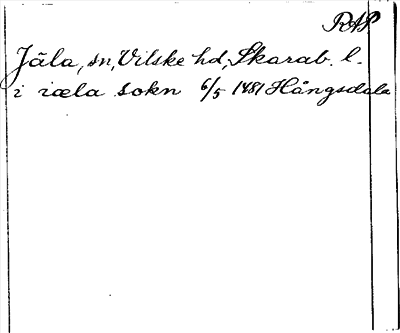 RAP.
Jäla, sn, Vilske hd, Skarab. l.
i iæla sokn 6/5 1481 Hångsdala